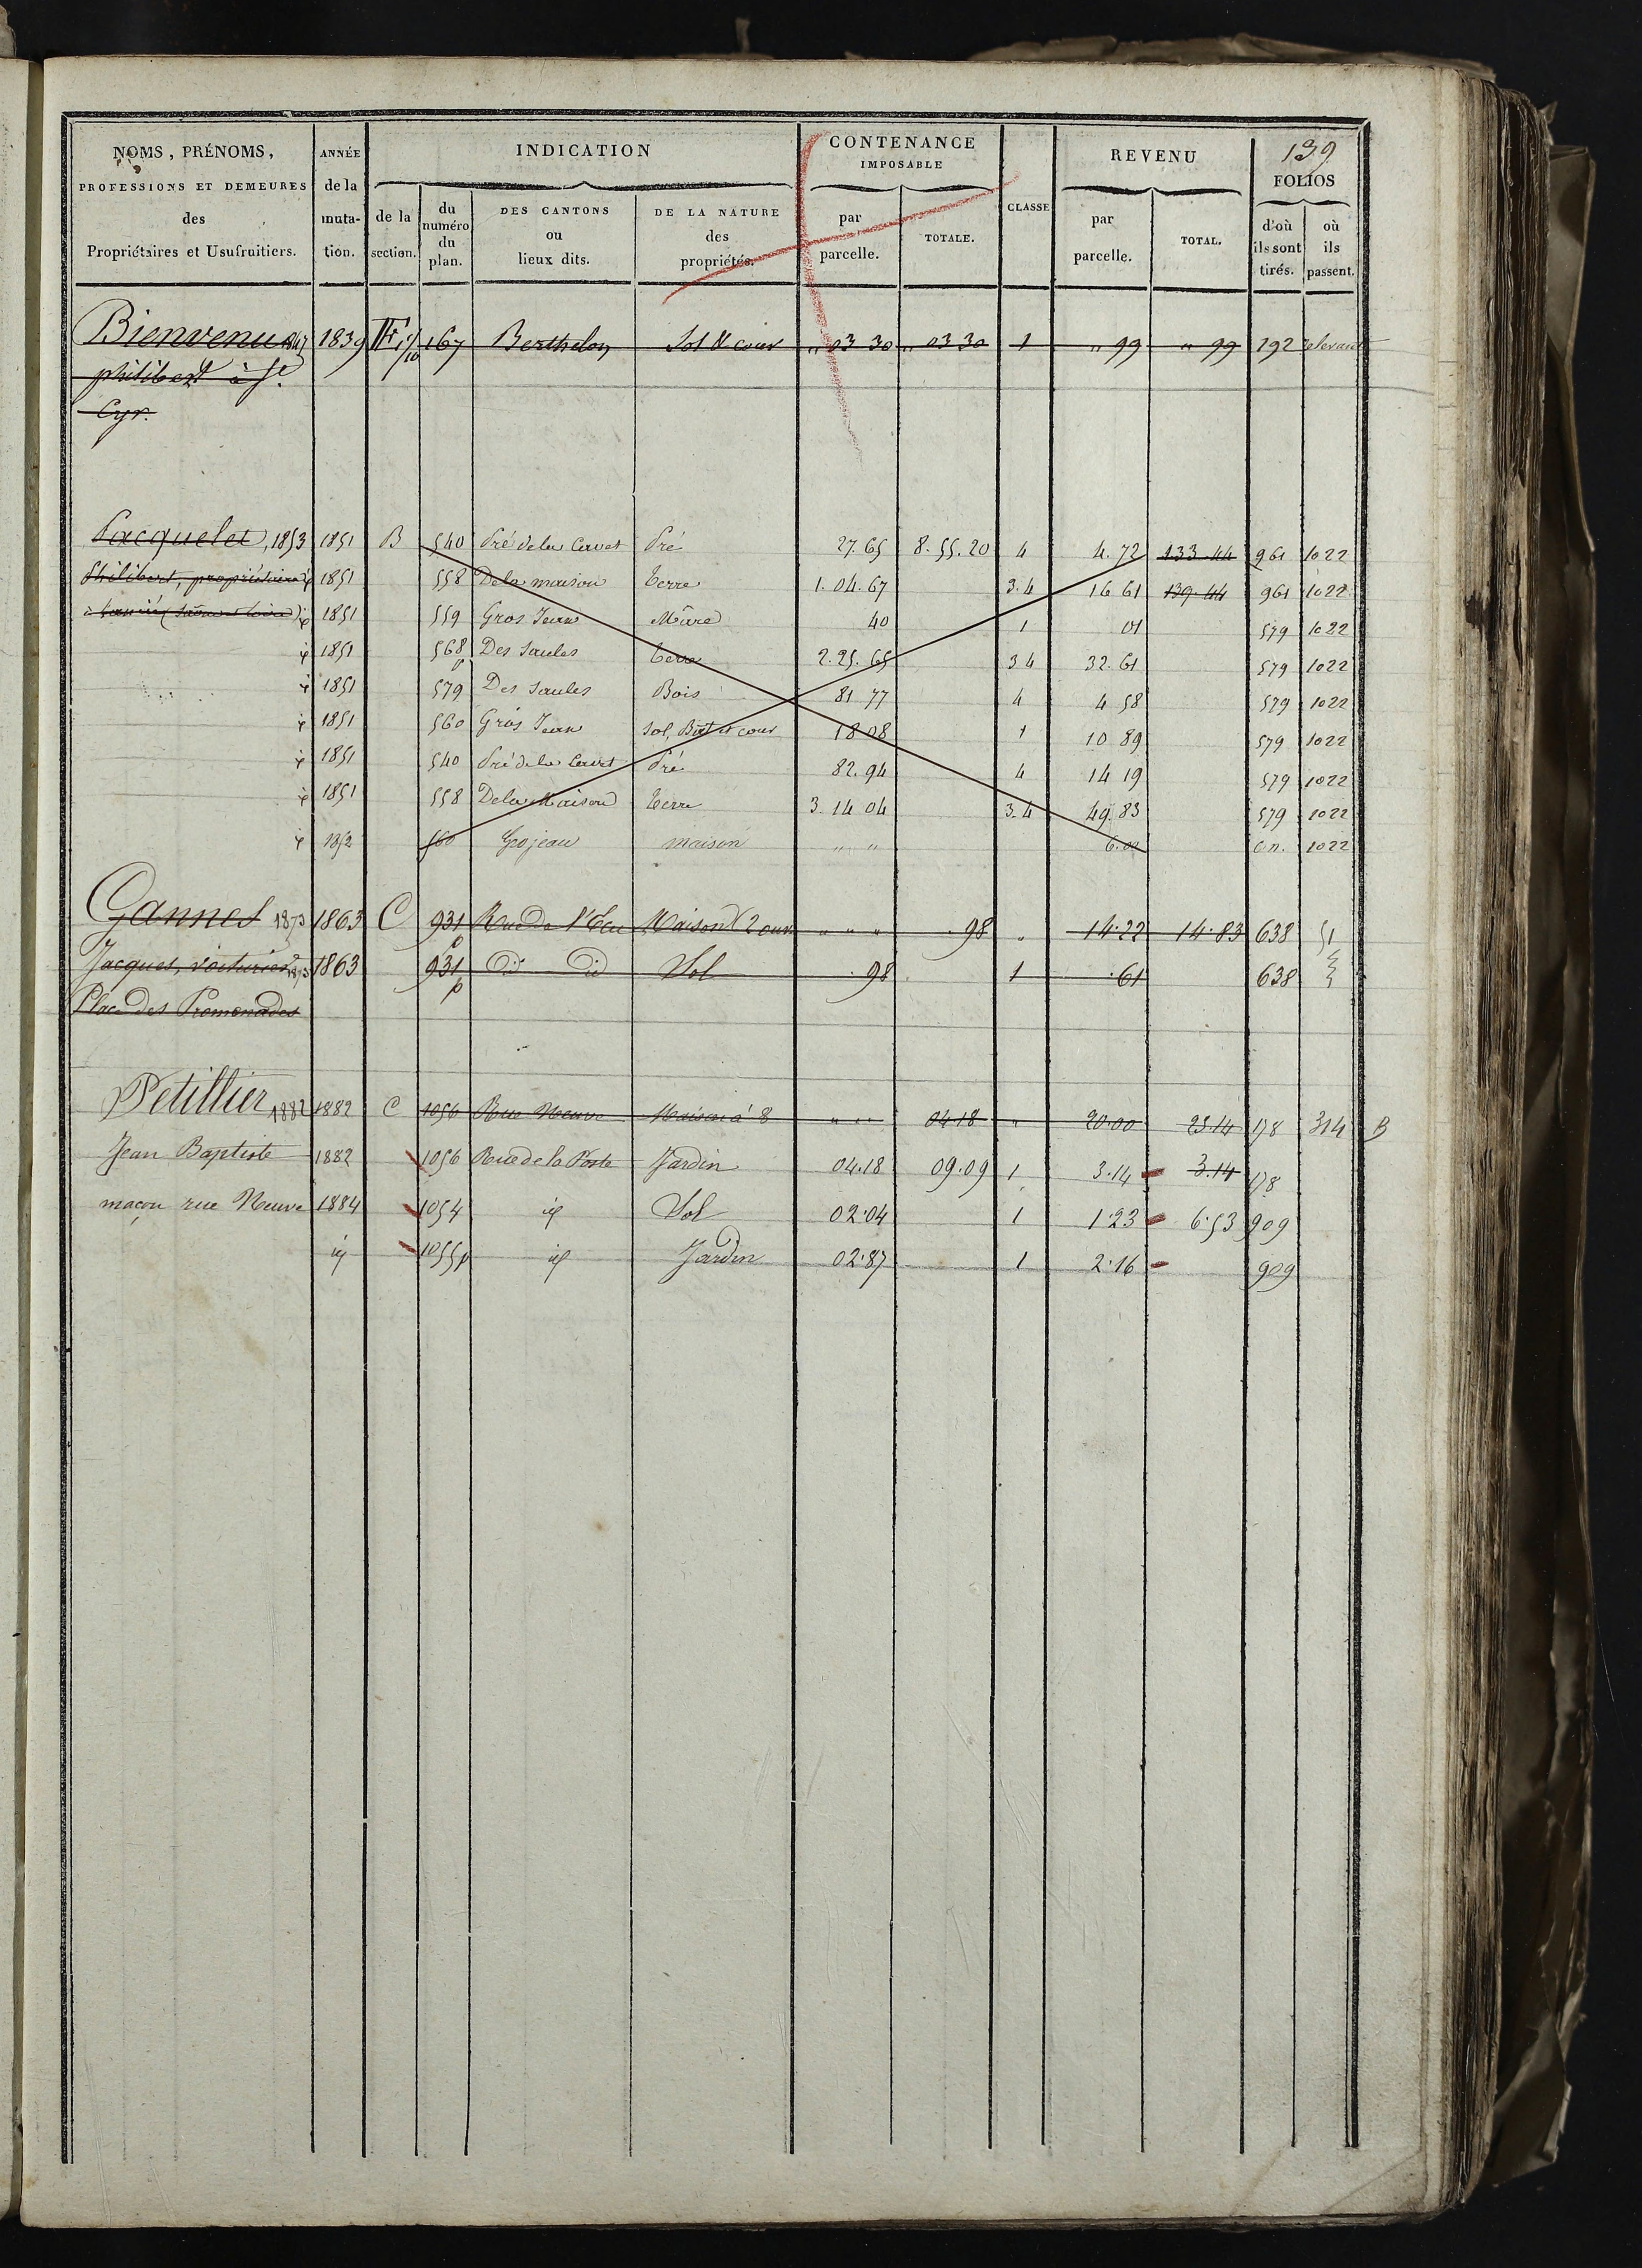 139
NOMS, PRÉNOMS, PROFESSIONS ET DEMEURES des Propriétaires et Usufruitiers.
ANNÉE de la muta- tion.
INDICATION
de la section.
du numéro du plan.
DES CANTONS ou lieux dits.
DE LA NATURE des propriétés.
CONTENANCE IMPOSABLE
par parcelle.
TOTALE.
CLASSE
REVENU
par parcelle.
TOTAL.
FOLIOS
d'où ils sont tirés.
où ils passent.
Bienvenu 1839 F 167 Berthelon Sol & cour " 03 30 " 03 30 1 " 99 " 99 292
philibert à St
Cyr.
Pacquelet, 1853 1851 B 540 Pré de la Cervet Pré 27.65 8.55.20 4 4.72 133 44 961 1022
Philibert, propriétaire id 1851 558 De la maison terre 1.04.67 3.4 16 61 139.44 961 1022
à (Saône et Loire) id 1851 559 Gros Jean Mare 40 1 01 579 1022
id 1851 568 p Des Saules terre 2.25.65 3 4 32.61 579 1022
id 1851 579 Des Saules Bois 81 77 4 4 58 579 1022
id 1851 560 Gros Jean Sol, Bat et cour 18 08 1 10 89 579 1022
id 1851 540 Pré de la Cervet Pré 82.94 4 14 19 579 1022
id 1851 558 De la Maison terre 3.14 04 3.4 49.83 579 1022
id 1852 560 Grojean maison " " 6.00 C.n. 1022
Gannet 1873 1863 C 931 p Rue de l'Ecu Maison (2 ouv " " " 98 " 14.22 14.83 638 51
Jacques, voiturier 1873 1863 931 p do do Sol . 98 1 .61 638
Place des Promenades
Petillier 1882 1882 C 1056 Rue Neuve Maison à 8 " " 04.18 " 20.00 23.14 178 314 B
Jean Baptiste 1882 1056 Rue de la Poste Jardin 04.18 09.09 1 3.14 3.14 178
maçon rue Neuve 1884 1054 id Sol 02.04 1 1.23 6.53 909
id 1055p id Jardin 02.87 1 2.16 909